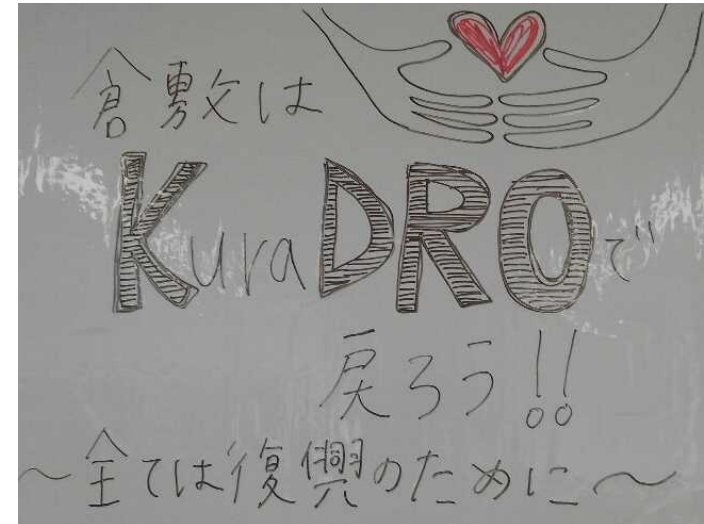 倉敷は
KuraDROで
戻ろう!!
～全ては復興のために～